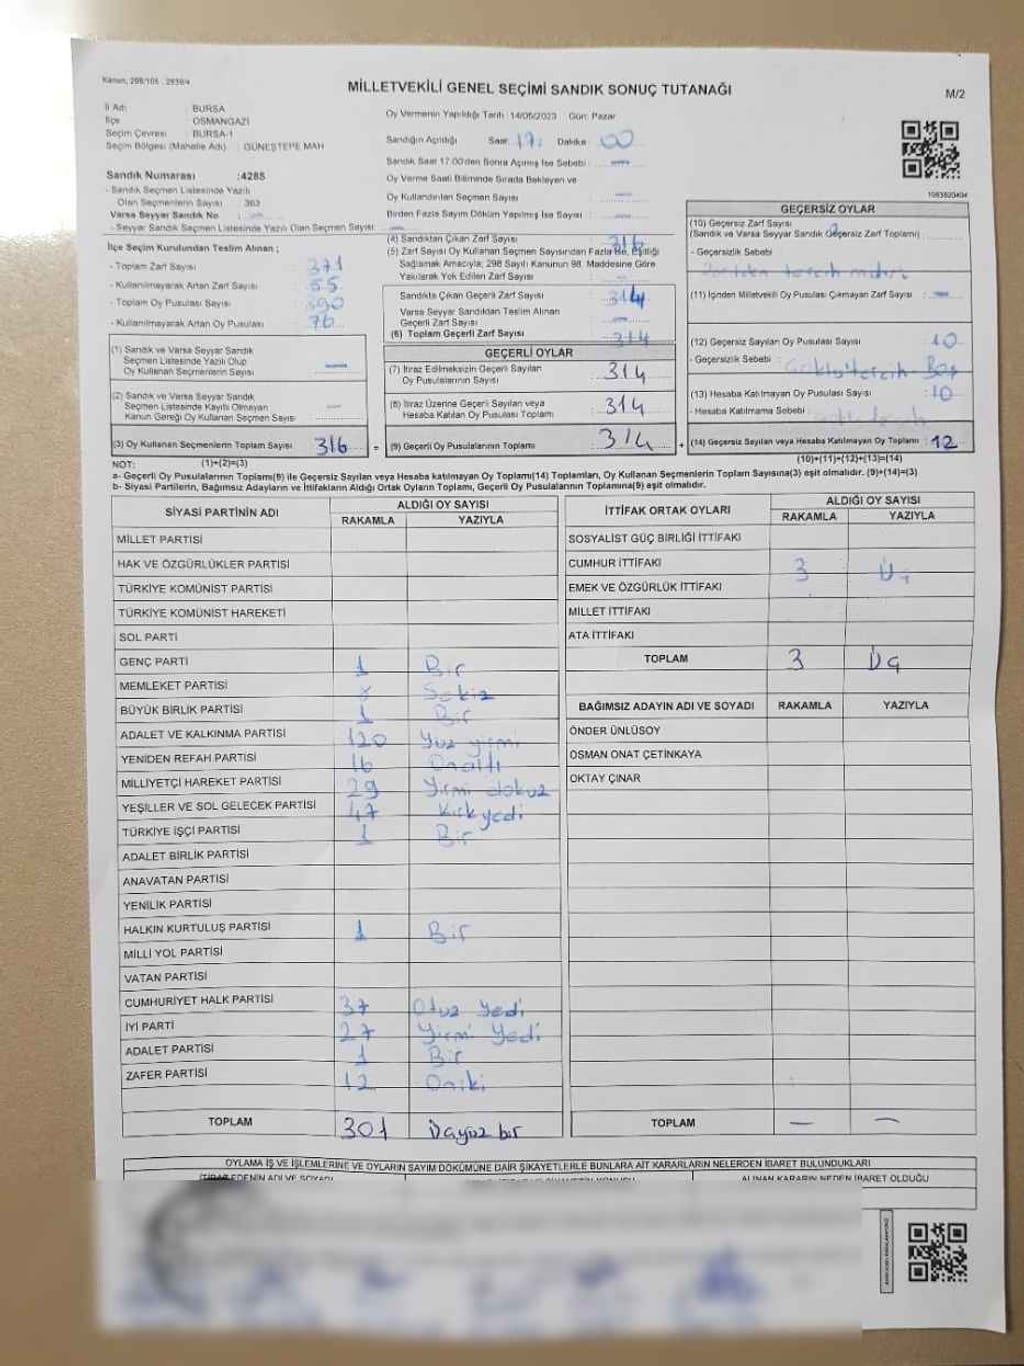 Kanun, 298/105 , 2839/4
MİLLETVEKİLİ GENEL SEÇİMİ SANDIK SONUÇ TUTANAĞI
M/2
İl Adı : BURSA
İlçe : OSMANGAZİ
Seçim Çevresi : BURSA-1
Seçim Bölgesi (Mahalle Adı) : GÜNEŞTEPE MAH
Sandık Numarası :4285
- Sandık Seçmen Listesinde Yazılı
Olan Seçmenlerin Sayısı : 363
Varsa Seyyar Sandık No :
- Seyyar Sandık Seçmen Listesinde Yazılı Olan Seçmen Sayısı
İlçe Seçim Kurulundan Teslim Alınan ;
- Toplam Zarf Sayısı : 371
- Kullanılmayarak Artan Zarf Sayısı : 55
- Toplam Oy Pusulası Sayısı : 390
- Kullanılmayarak Artan Oy Pusulası : 76
(1) Sandık ve Varsa Seyyar Sandık
Seçmen Listesinde Yazılı Olup
Oy Kullanan Seçmenlerin Sayısı :
(2) Sandık ve Varsa Seyyar Sandık
Seçmen Listesinde Kayıtlı Olmayan
Kanun Gereği Oy Kullanan Seçmen Sayısı :
(3) Oy Kullanan Seçmenlerin Toplam Sayısı 316 =
(1)+(2)=(3)
Oy Vermenin Yapıldığı Tarih : 14/05/2023 Gün: Pazar
Sandığın Açıldığı Saat : 17: Dakika : 00
Sandık Saat 17.00'den Sonra Açılmış İse Sebebi :
Oy Verme Saati Bitiminde Sırada Bekleyen ve
Oy Kullandırılan Seçmen Sayısı :
Birden Fazla Sayım Döküm Yapılmış İse Sayısı :
(4) Sandıktan Çıkan Zarf Sayısı : 316
(5) Zarf Sayısı Oy Kullanan Seçmen Sayısından Fazla İse, Eşitliği
Sağlamak Amacıyla; 298 Sayılı Kanunun 98. Maddesine Göre
Yakılarak Yok Edilen Zarf Sayısı :
Sandıkta Çıkan Geçerli Zarf Sayısı : 314
Varsa Seyyar Sandıktan Teslim Alınan
Geçerli Zarf Sayısı :
(6) Toplam Geçerli Zarf Sayısı : 314
GEÇERLİ OYLAR
(7) İtiraz Edilmeksizin Geçerli Sayılan
Oy Pusulalarının Sayısı : 314
(8) İtiraz Üzerine Geçerli Sayılan veya
Hesaba Katılan Oy Pusulası Toplamı : 314
(9) Geçerli Oy Pusulalarının Toplamı : 314 +
1083820404
GEÇERSİZ OYLAR
(10) Geçersiz Zarf Sayısı
(Sandık ve Varsa Seyyar Sandık Geçersiz Zarf Toplamı) : 2
- Geçersizlik Sebebi
(11) İçinden Milletvekili Oy Pusulası Çıkmayan Zarf Sayısı :
(12) Geçersiz Sayılan Oy Pusulası Sayısı : 10
- Geçersizlik Sebebi : Boş
(13) Hesaba Katılmayan Oy Pusulası Sayısı : 10
- Hesaba Katılmama Sebebi :
(14) Geçersiz Sayılan veya Hesaba Katılmayan Oy Toplamı : 12
(10)+(11)+(12)+(13)=(14)
NOT:
a- Geçerli Oy Pusulalarının Toplamı(9) ile Geçersiz Sayılan veya Hesaba katılmayan Oy Toplamı(14) Toplamları, Oy Kullanan Seçmenlerin Toplam Sayısına(3) eşit olmalıdır. (9)+(14)=(3)
b- Siyasi Partilerin, Bağımsız Adayların ve İttifakların Aldığı Ortak Oyların Toplamı, Geçerli Oy Pusulalarının Toplamına(9) eşit olmalıdır.
SİYASİ PARTİNİN ADI ALDIĞI OY SAYISI
RAKAMLA YAZIYLA
MİLLET PARTİSİ
HAK VE ÖZGÜRLÜKLER PARTİSİ
TÜRKİYE KOMÜNİST PARTİSİ
TÜRKİYE KOMÜNİST HAREKETİ
SOL PARTİ
GENÇ PARTİ 1 Bir
MEMLEKET PARTİSİ 8 Sekiz
BÜYÜK BİRLİK PARTİSİ 1 Bir
ADALET VE KALKINMA PARTİSİ 120 Yüz yirmi
YENİDEN REFAH PARTİSİ 16 Onaltı
MİLLİYETÇİ HAREKET PARTİSİ 29 Yirmi dokuz
YEŞİLLER VE SOL GELECEK PARTİSİ 47 Kırk yedi
TÜRKİYE İŞÇİ PARTİSİ 1 Bir
ADALET BİRLİK PARTİSİ
ANAVATAN PARTİSİ
YENİLİK PARTİSİ
HALKIN KURTULUŞ PARTİSİ 1 Bir
MİLLİ YOL PARTİSİ
VATAN PARTİSİ
CUMHURİYET HALK PARTİSİ 37 Otuz Yedi
İYİ PARTİ 27 Yirmi Yedi
ADALET PARTİSİ 1 Bir
ZAFER PARTİSİ 12 Oniki
TOPLAM 301 Üçyüz bir
İTTİFAK ORTAK OYLARI ALDIĞI OY SAYISI
RAKAMLA YAZIYLA
SOSYALİST GÜÇ BİRLİĞİ İTTİFAKI
CUMHUR İTTİFAKI 3 Üç
EMEK VE ÖZGÜRLÜK İTTİFAKI
MİLLET İTTİFAKI
ATA İTTİFAKI
TOPLAM 3 Üç
BAĞIMSIZ ADAYIN ADI VE SOYADI RAKAMLA YAZIYLA
ÖNDER ÜNLÜSOY
OSMAN ONAT ÇETİNKAYA
OKTAY ÇINAR
TOPLAM — —
OYLAMA İŞ VE İŞLEMLERİNE VE OYLARIN SAYIM DÖKÜMÜNE DAİR ŞİKAYETLERLE BUNLARA AİT KARARLARIN NELERDEN İBARET BULUNDUKLARI
İTİRAZ EDENİN ADI VE SOYADI ALINAN KARARIN NEDEN İBARET OLDUĞU